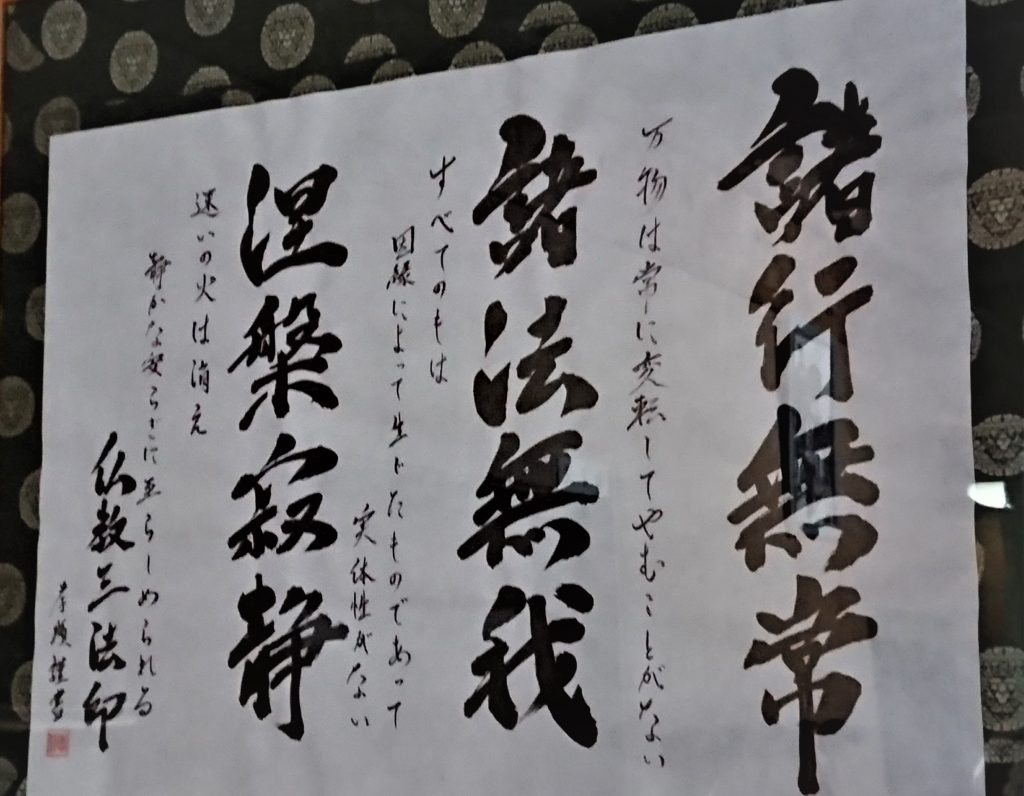 諸行無常
万物は常に変転してやむことがない
諸法無我
すべてのもは
因縁によって生じたものであって
実体性がない
涅槃寂静
迷いの火は消え
静かな安らぎに至らしめられる
仏教三法印